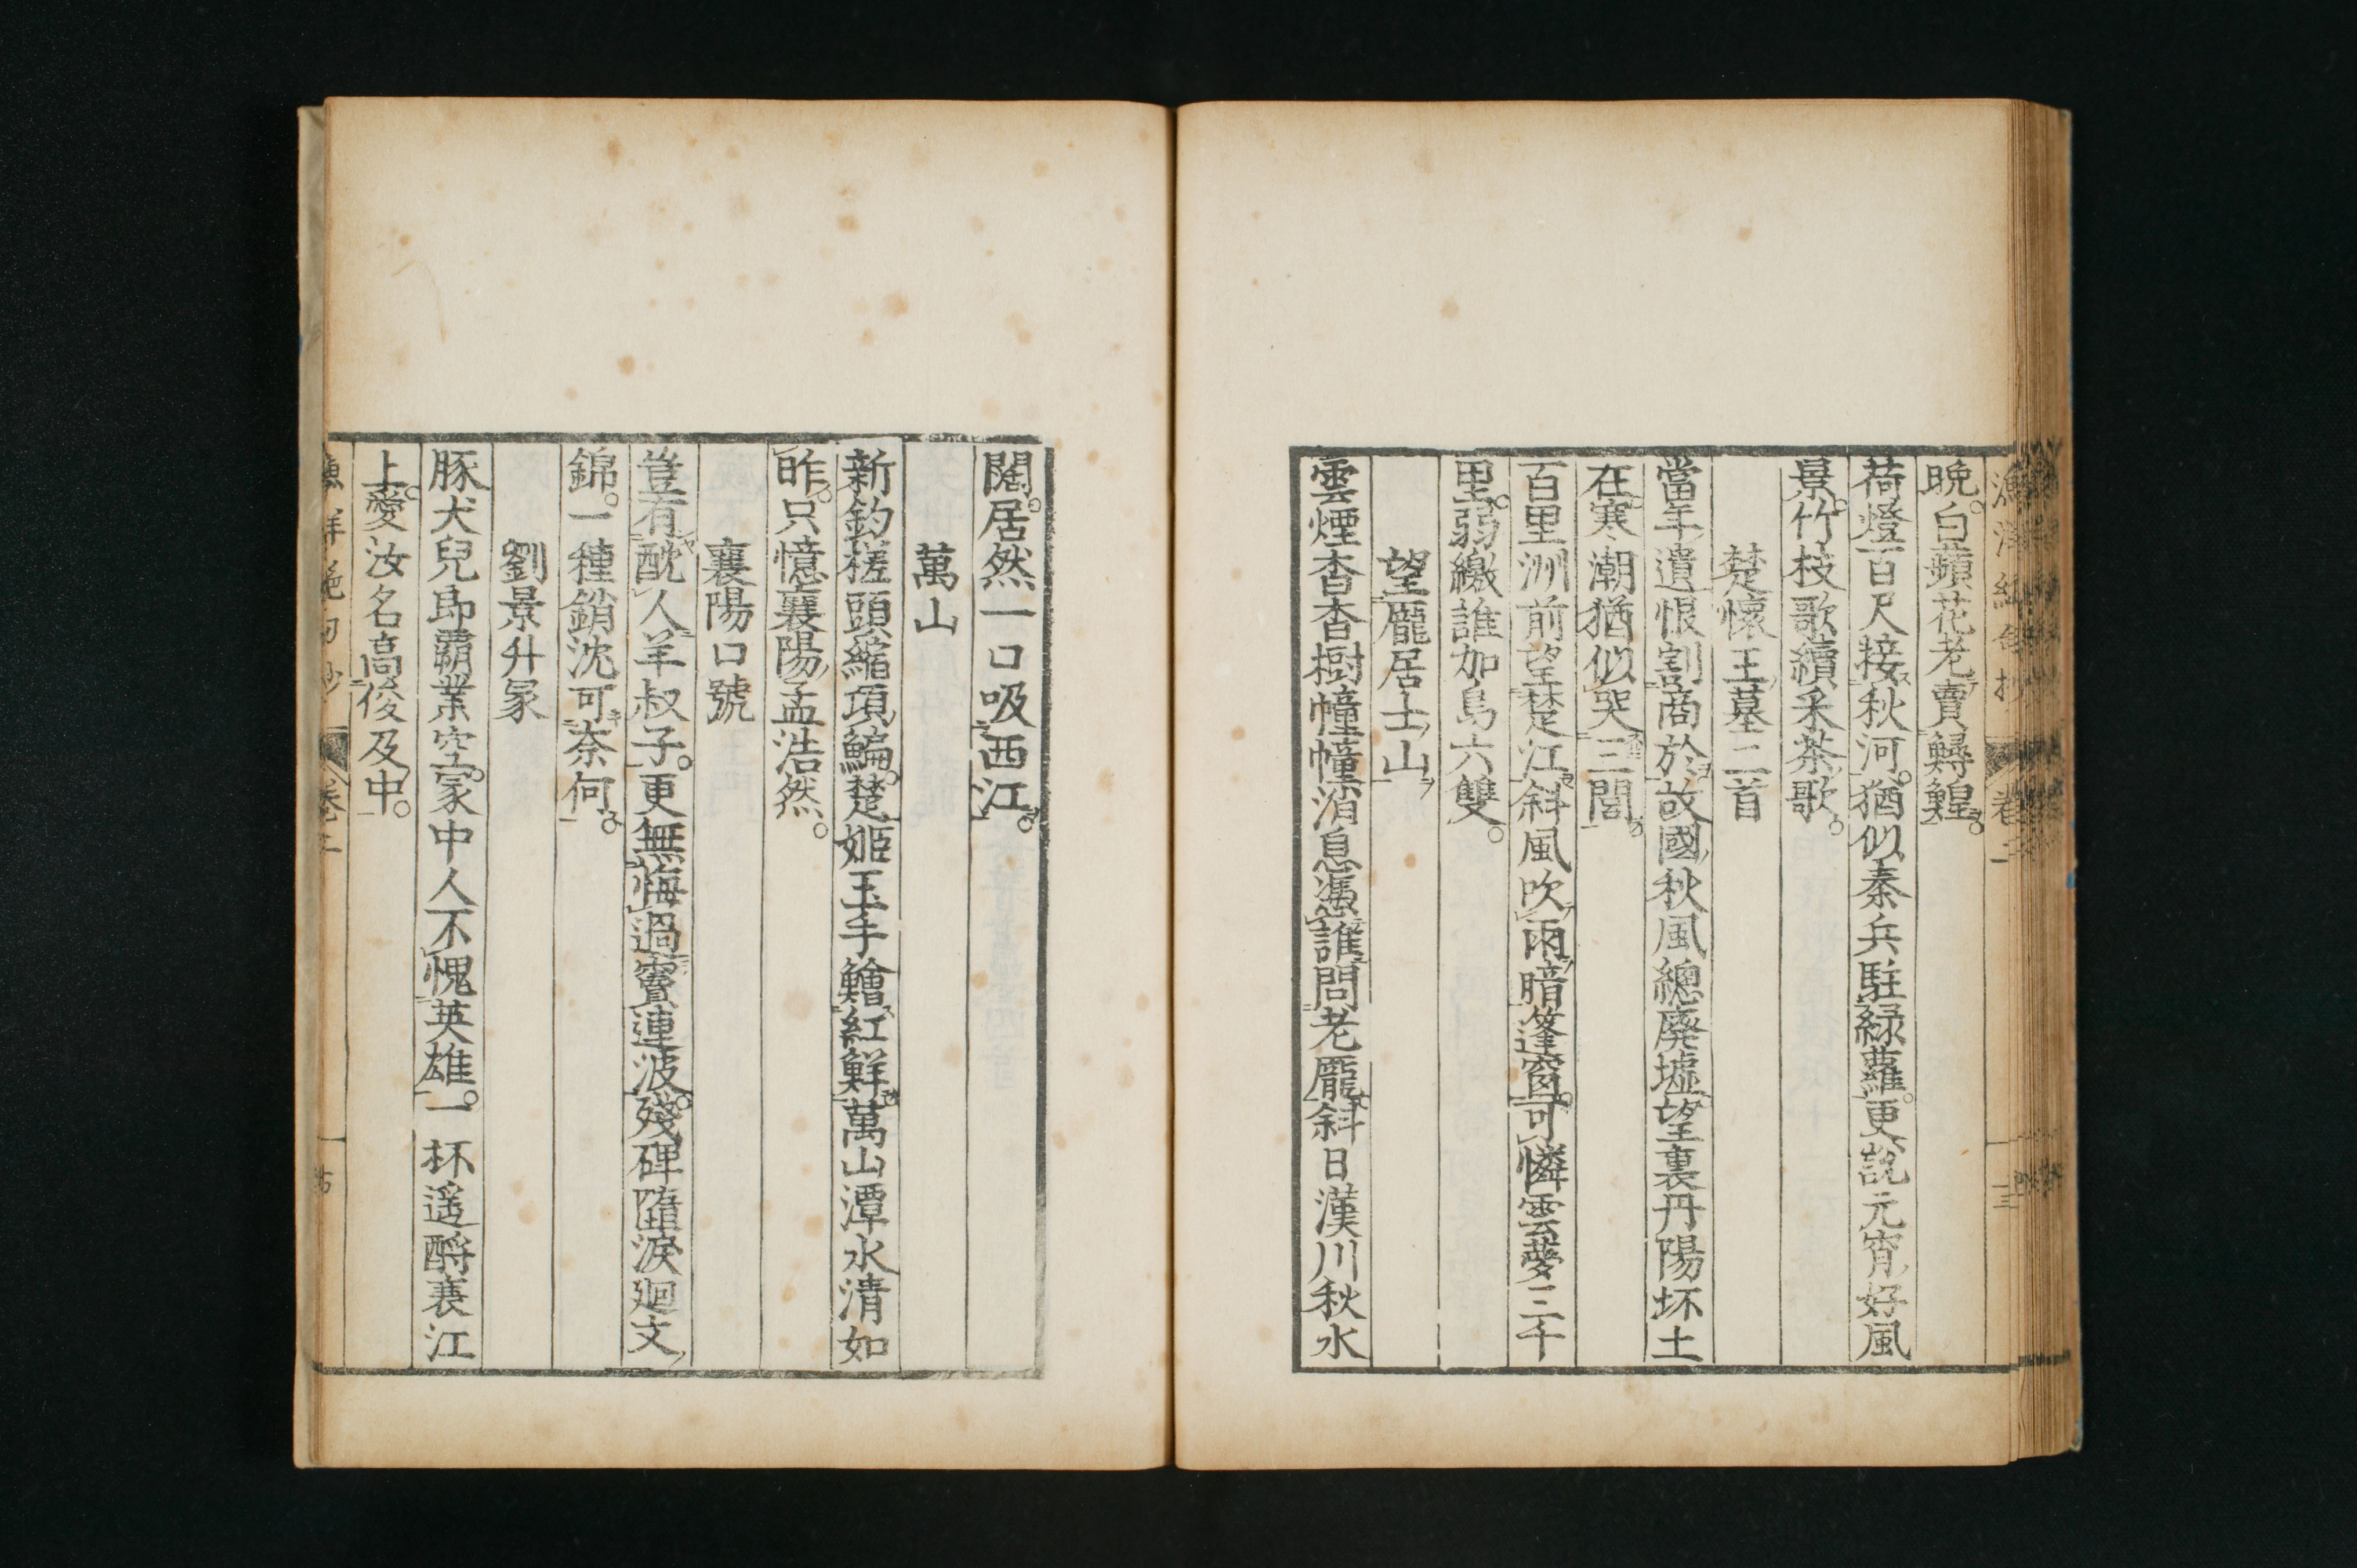 晩。白蘋花老賣鱘鰉。
荷燈百尺接秋河。猶似秦兵駐緑蘿。更說元宵好風
景。竹枝歌續采茶歌。
楚懷王墓二首
當年遺恨割商於故國秋風總廢墟望裏丹陽坏土
在。寒潮猶似哭三閭。
百里洲前望楚江斜風吹雨暗篷窗。可憐雲夢三千
里。弱繳誰加鳥六雙。
望龐居士山
雲煙杳杳樹幢幢消息憑誰問老龐斜日漢川秋水
闊。居然一口吸西江。
萬山
新釣槎頭縮項鯿。楚姬玉手鱠紅鮮萬山潭水清如
昨。只憶襄陽孟浩然。
襄陽口號
豈有酖人羊叔子。更無悔過竇連波。殘碑墮淚廻文
錦。一種銷沈可奈何。
劉景升冢
豚犬兒郎覇業空。冢中人不愧英雄。一杯遥酹襄江
上。愛汝名高俊及中。